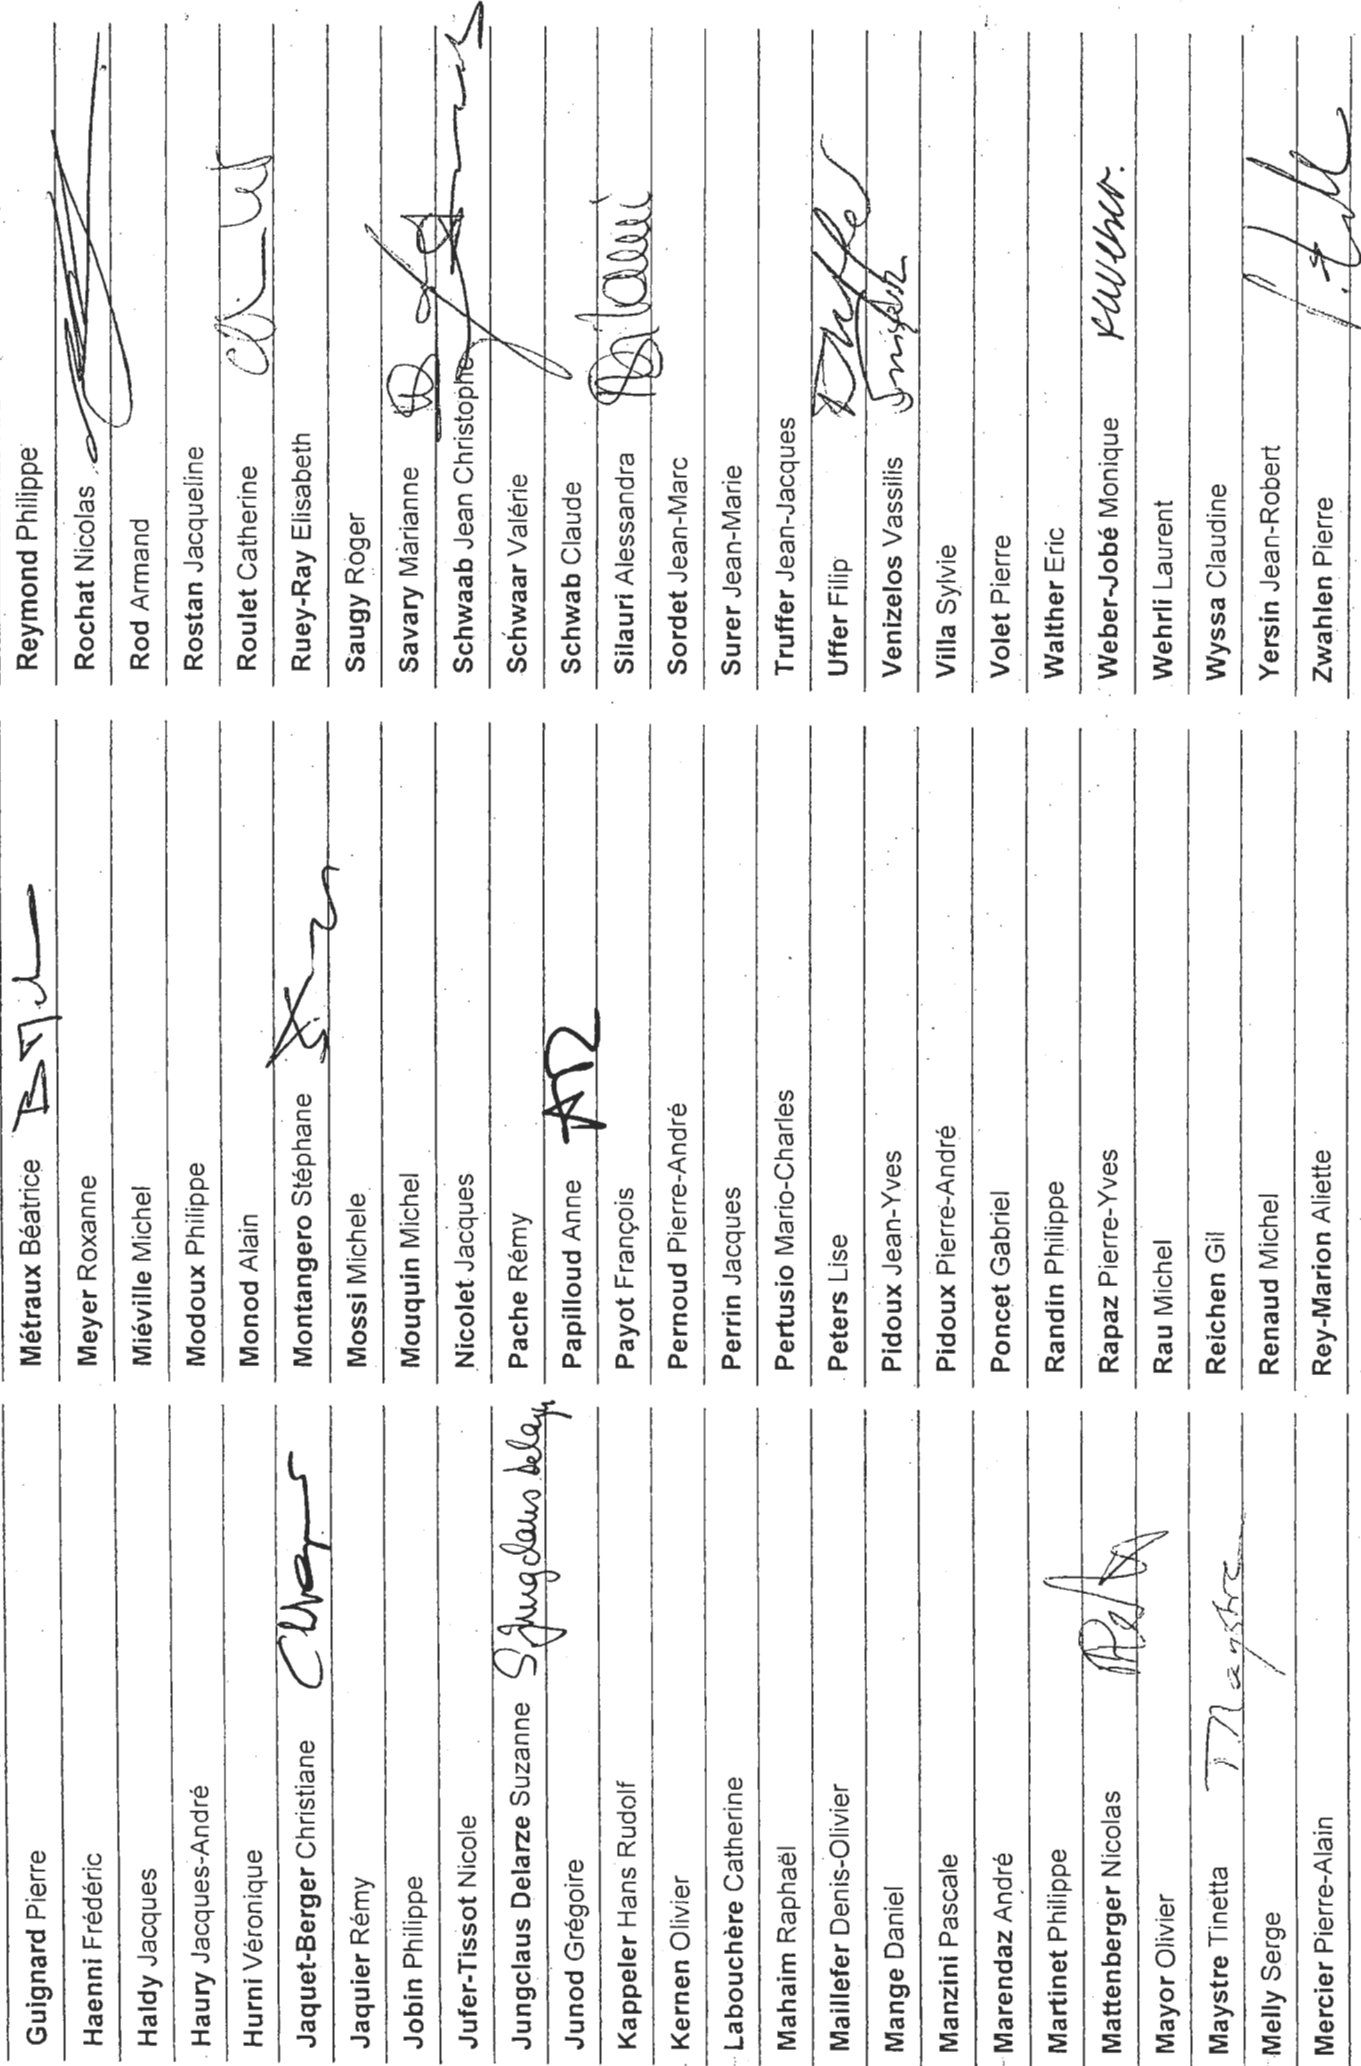 Guignard Pierre
Haenni Frédéric
Haldy Jacques
Haury Jacques-André
Hurni Véronique
Jaquet-Berger Christiane
Jaquier Rémy
Jobin Philippe
Jufer-Tissot Nicole
Jungclaus Delarze Suzanne SJungclaus Delarze
Junod Grégoire
Kappeler Hans Rudolf
Kernen Olivier
Labouchère Catherine
Mahaim Raphaël
Maillefer Denis-Olivier
Mange Daniel
Manzini Pascale
Marendaz André
Martinet Philippe
Mattenberger Nicolas
Mayor Olivier
Maystre Tinetta Maystre
Melly Serge
Mercier Pierre-Alain
Métraux Béatrice
Meyer Roxanne
Miéville Michel
Modoux Philippe
Monod Alain
Montangero Stéphane
Mossi Michele
Mouquin Michel
Nicolet Jacques
Pache Rémy
Papilloud Anne
Payot François
Pernoud Pierre-André
Perrin Jacques
Pertusio Mario-Charles
Peters Lise
Pidoux Jean-Yves
Pidoux Pierre-André
Poncet Gabriel
Randin Philippe
Rapaz Pierre-Yves
Rau Michel
Reichen Gil
Renaud Michel
Rey-Marion Aliette
Reymond Philippe
Rochat Nicolas
Rod Armand
Rostan Jacqueline
Roulet Catherine
Ruey-Ray Elisabeth
Saugy Roger
Savary Marianne
Schwaab Jean Christophe
Schwaar Valérie
Schwab Claude
Silauri Alessandra
Sordet Jean-Marc
Surer Jean-Marie
Truffer Jean-Jacques
Uffer Filip
Venizelos Vassilis
Villa Sylvie
Volet Pierre
Walther Eric
Weber-Jobé Monique
Wehrli Laurent
Wyssa Claudine
Yersin Jean-Robert
Zwahlen Pierre